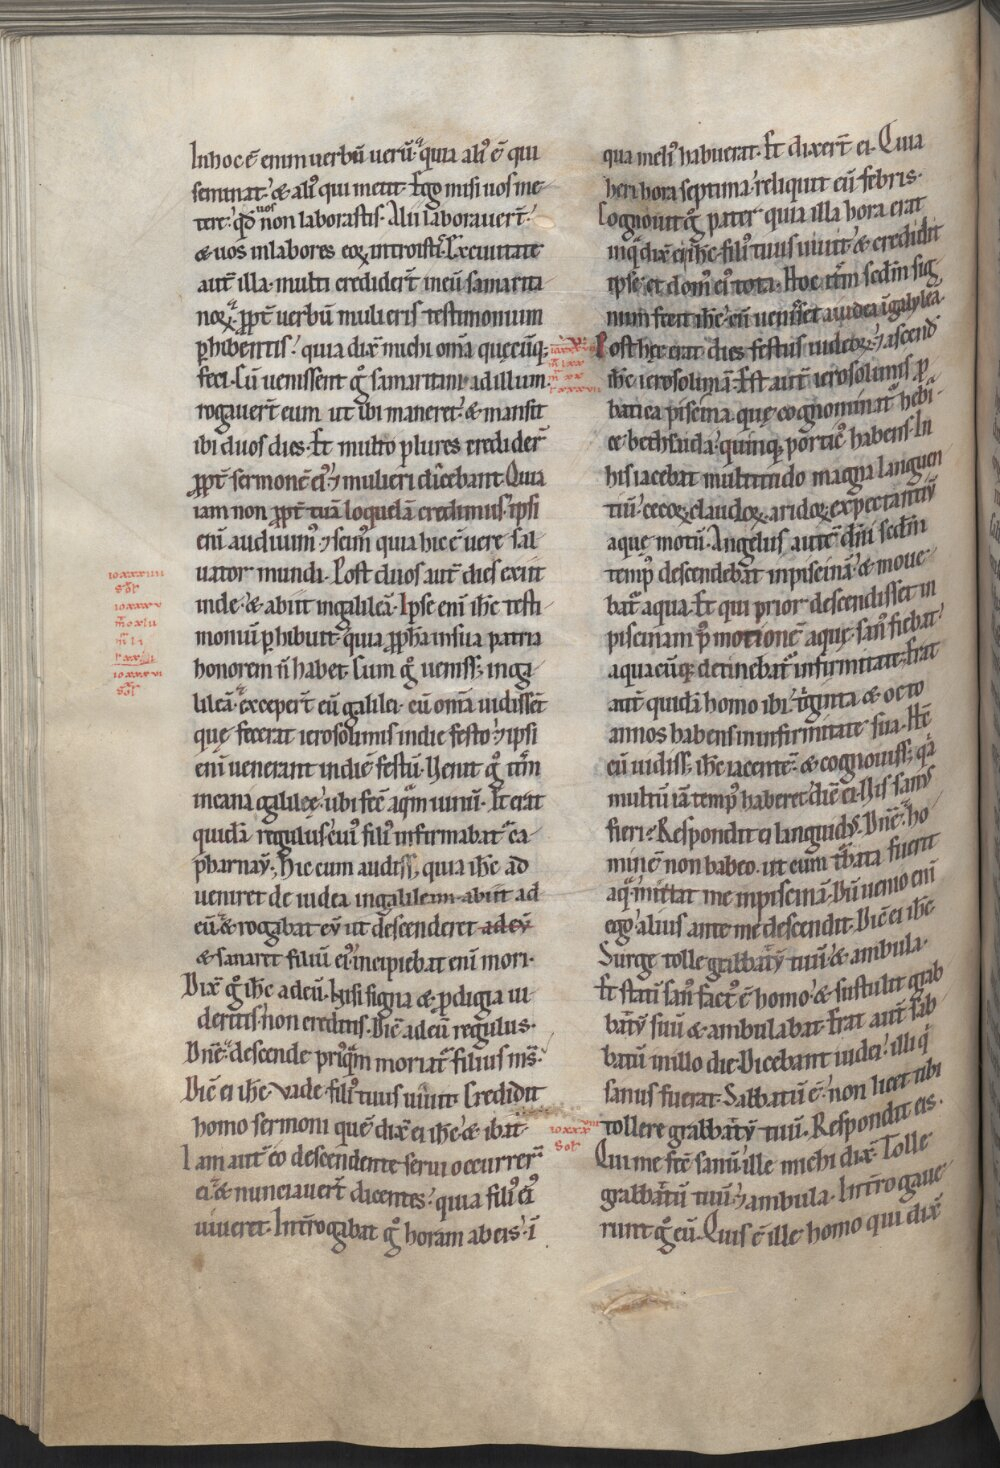 In hoc ē enim uerbū uerū. quia aliꝰ ē qui
seminat. & aliꝰ qui metit. Ego misi uos me-
tere. qđ uos non laborastis. Alii laborauer̄t.
& uos in labores eoꝝ introistis. Ex ciuitate
aut̄ illa multi credider̄t in eū samarita
noꝝ. ꝓpt̄ uerbū mulieris testimonium
ꝑhibentis. quia dix̄ michi om̄a quęcūqꝫ
feci. Cū uenissent g̊ samaritani ad illum.
rogauer̄t eum ut ibi maneret. & mansit
ibi duos dies. Et multo plures credider̄
ꝓpt̄ sermonē eiꝰ. ⁊ mulieri dicebant. Quia
iam non ꝓpt̄ tuā loquelā credimus. ipsi
eni audiuimꝰ. ⁊ scimꝰ quia hic ē uere sal
uator mundi. Post duos aut̄ dies exiit
inde. & abiit in galileā. Ipse eni ih̄c testi
moniū ꝑhibuit. quia ꝓph̄a in sua patria
honorem n̄ habet. Cum g̊ uenissꝫ in ga
lileā. exceper̄t eū galilei. cū om̄a uidissēt
quę fecerat ierosolimis in die festo. ⁊ ipsi
eni uenerant in diē festū. Uenit g̊ itm̄
in cana galileę. ubi fec̄ aqm̄ uinū. Et erat
quidā regulus. cuiꝰ filiꝰ infirmabat᷑ ca
pharnaū. Hic cum audissꝫ quia ih̄c ad
ueniret de iudea in galileam. abiit ad
eū. & rogabat eū ut descenderet ad eū
& sanaret filiū eiꝰ. incipiebat eni mori.
Dix̄ g̊ ih̄c ad eū. Nisi signa & ꝓdigia ui
deritis. non creditis. Dic̄ ad eū regulus.
Dn̄e. descende priꝰqm̄ moriat᷑ filius mꝰs.
Dic̄ ei ih̄c. Vade. filiꝰ tuus uiuit. Credidit
homo sermoni quē dix̄ ei ih̄c. & ibat.
Iam aut̄ eo descendente serui occurrer̄
ei. & nunciauer̄t dicentes. quia filiꝰ eiꝰ
uiueret. Intr̄rogabat g̊ horam ab eis. ī
qua meliꝰ habuerat. Et dixer̄t ei. Quia
heri hora septima. reliquit eū febris.
Cognouit g̊ pater quia illa hora erat
in q̄ dix̄ ei ih̄c. filiꝰ tuus uiuit. & credidit
ipse. et domꝰ eiꝰ tota. Hoc itm̄ scd̄m sig
num fecit ih̄c. cū uenisset a iudea ī galyleā.
Post hęc erat dies festus iudeoꝝ. ⁊ ascend̄
ih̄c ierosolimā. Est aut̄ ierosolimis ꝓ
batica piscina. quę cognominat᷑ hebi-
ce bethsaida. quinqꝫ porticꝰ habens. In
his iacebat multitudo magna languen
tiū. cecoꝝ. claudoꝝ. aridoꝝ. expectantiū
aque motū. Angelus aute dn̄i scd̄m
tempꝰ descendebat in piscinā. & moue-
bat᷑ aqua. Et qui prior descendisset in
piscinam pꝰ motionē aquę. sanꝰ fiebat.
a quacūqꝫ detinebat᷑ infirmitate. Erat
aut̄ quidā homo ibi. triginta & octo
annos habens in infirmitate sua. Hc̄
cū uidissꝫ ih̄c iacentē. & cognouissꝫ qa
multū iā tempꝰ haberet. dic̄ ei. Uis sanꝰ
fieri? Respondit ei languidꝰ. Dn̄e. ho
minē non habeo. ut cum tbata fuerit
aq̄. mittat me in piscinā. Dū uenio eni
ego. alius ante me descendit. Dic̄ ei ih̄c
Surge tolle grabbatū tuū. & ambula.
Et statī sanꝰ factꝰ ē homo. & sustulit grab
batū suū & ambulabat. Erat aut̄ sab
batū in illo die. Dicebant iudei illi q̄
sanus fuerat. Sabbatū ē. non licet tibi
tollere grabbatū tuū. Respondit eis.
Qui me fec̄ sanū. ille michi dix̄. Tolle
grabbatū tuū. ⁊ ambula. Intr̄rogaue
runt g̊ eū. Quis ē ille homo qui dix̄